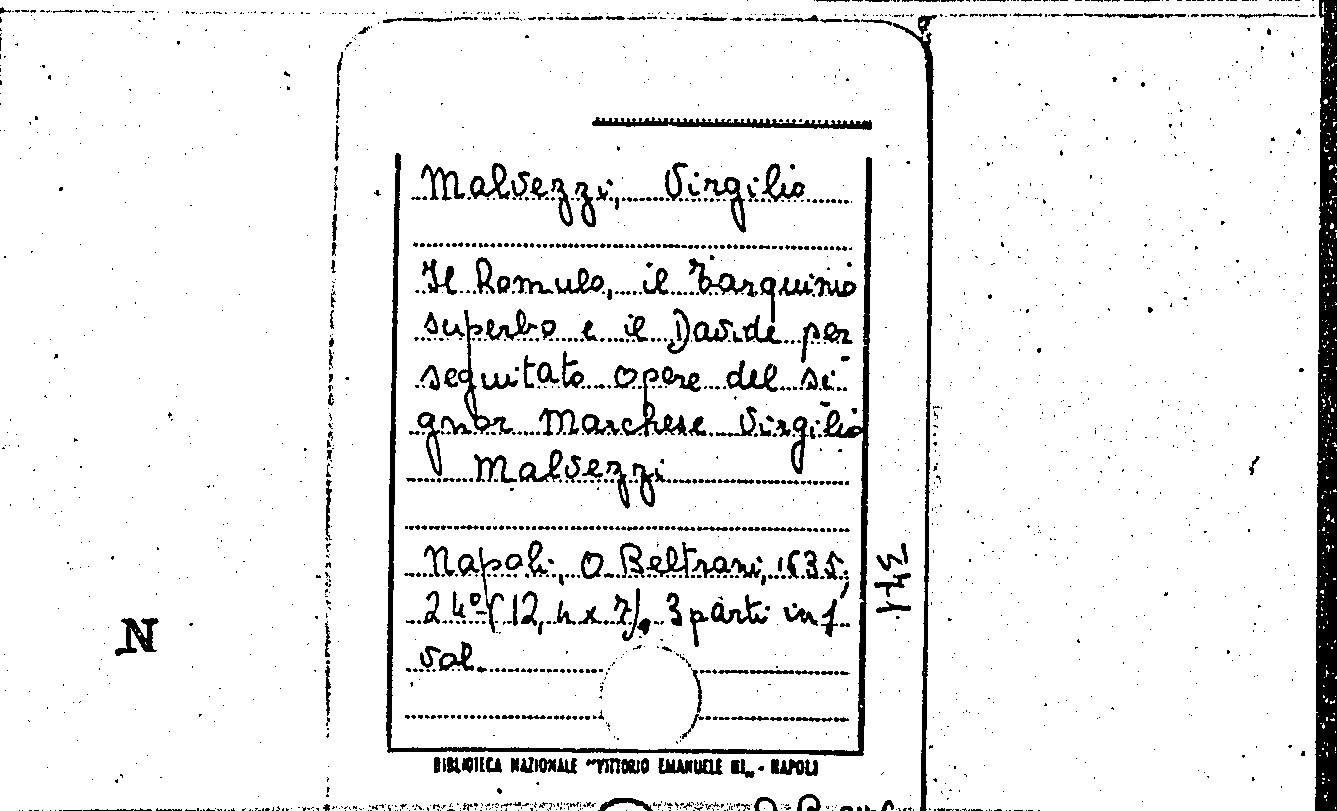 Malvezzi, Virgilio
Il Romulo, il Tarquinio
superbo e il Davide per
seguitato opere del si-
gnor Marchese Virgilio
Malvezzi
Napoli, O Beltrani, 1635,
24º (12,4 x 7). 3 parti in 1
vol.
344
N
BIBLIOTECA NAZIONALE "VITTORIO EMANUELE III„ - NAPOLI